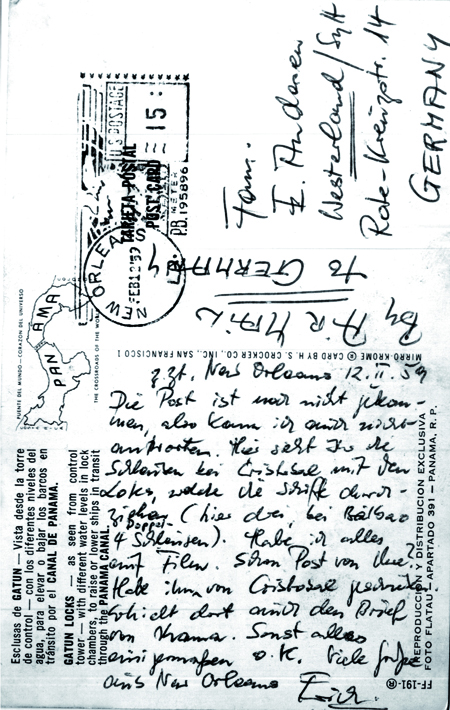 U.S. POSTAGE
15
P.B. METER
195896
TARJETA POSTAL
POST CARD
NEW ORLEANS
FEB 12 '59
LA.
Fam.
E. Andresen
Westerland/Sylt
Rote-Kreuzstr. 14
GERMANY
To GERMANY
By AIR MAIL
PUENTE DEL MUNDO — CORAZON DEL UNIVERSO
PANAMA
THE CROSSROADS OF THE WORLD
MIRRO-KROME ® CARD BY H. S. CROCKER CO., INC., SAN FRANCISCO 1
z.Zt. New Orleans 12. II. 59
Die Post ist noch nicht gekom-
men, also kann ich auch nicht
antworten. Hier seht Ihr die
Schleusen bei Cristobal mit den
Loks, welche die Schiffe durch-
ziehen (hier drei, bei Balboa
4 Doppel-Schleusen). Habe ich alles
auf Film. Schon Post von
Habe ihm von Cristobal
Erhielt dort auch den Brief
von Mama. Sonst alles
einigermaßen o.K. Viele Grüße
aus New Orleans Erich.
Esclusas de GATUN — Vista desde la torre
de control — con los diferentes niveles del
agua, para elevar o bajar los barcos en
tránsito por el CANAL DE PANAMA.
GATUN LOCKS — as seen from control
tower — with different water levels in lock
chambers, to raise or lower ships in transit
through the PANAMA CANAL.
REPRODUCCION Y DISTRIBUCION EXCLUSIVA
FOTO FLATAU — APARTADO 391 — PANAMA, R. P.
FF-191-®